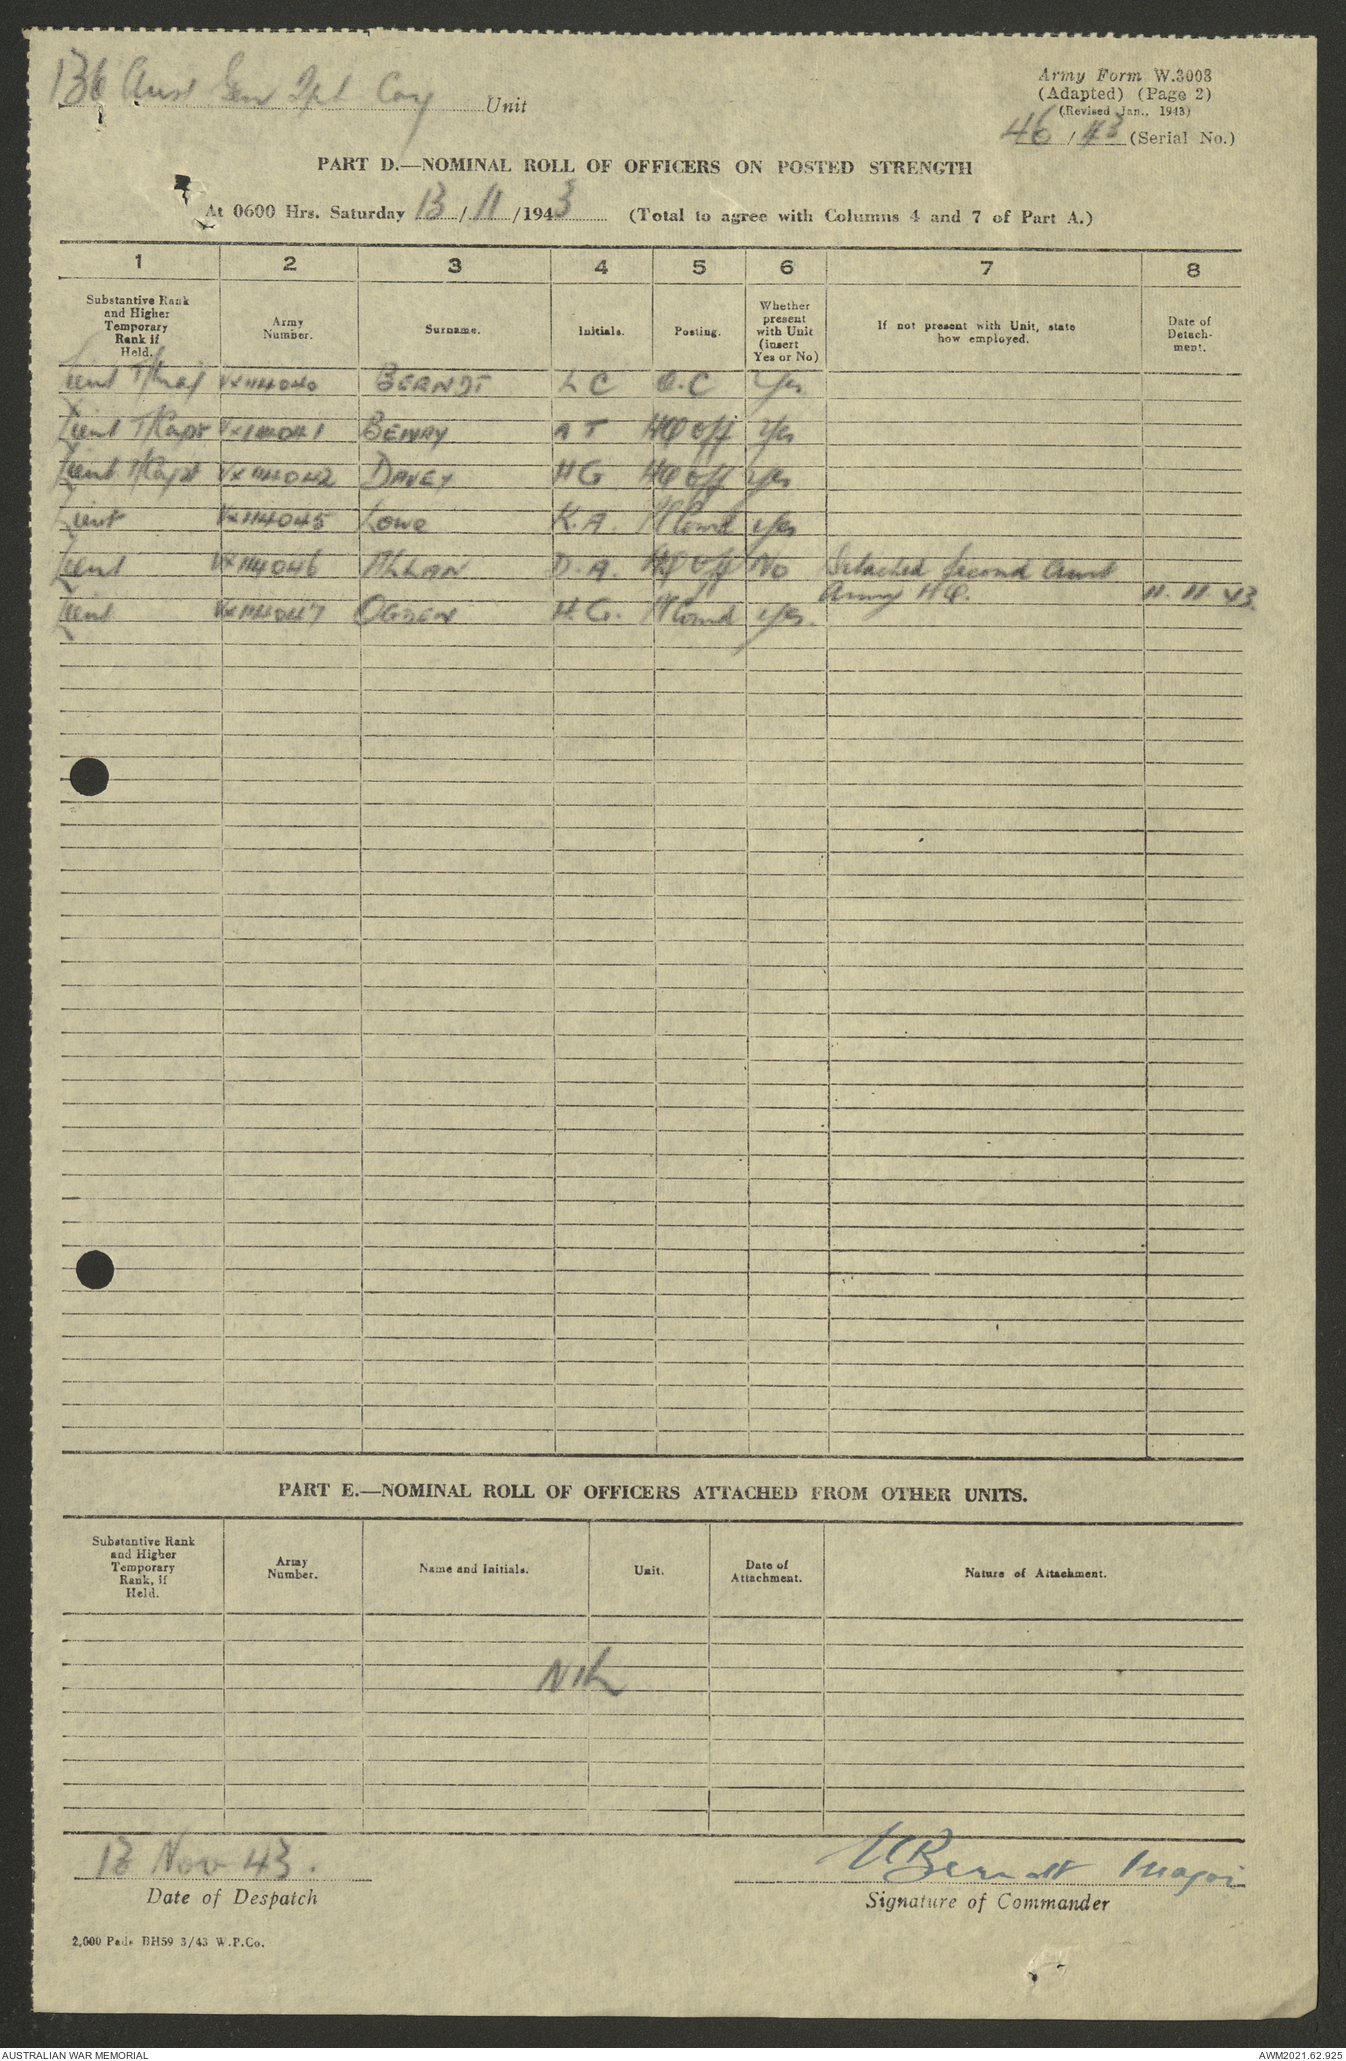 136 Aust Gen Tpt Coy Unit
Army Form W.3008
(Adapted) (Page 2)
(Revised Jan., 1943)
46 / 43 (Serial No.)
PART D.—NOMINAL ROLL OF OFFICERS ON POSTED STRENGTH
At 0600 Hrs. Saturday 13 / 11 /1943 (Total to agree with Columns 4 and 7 of Part A.)
1 2 3 4 5 6 7 8
Substantive Rank and Higher Temporary Rank if Held. Army Number. Surname. Initials. Posting. Whether present with Unit (insert Yes or No) If not present with Unit, state how employed. Date of Detachment.
Lieut T/Maj VX114040 BERNDT L C O.C Yes
Lieut T/Capt VX114041 A T HQ Off Yes
Lieut T/Capt VX114042 DAVEY H G HQ Off Yes
Lieut VX114045 Lowe K.A. Pl Comd Yes
Lieut VX114046 ALLAN D.A. HQ Off No Detached Second Aust
Army HQ. 11. 11 43.
Lieut VX114047 OGDEN H.G. Pl Comd Yes.
PART E.—NOMINAL ROLL OF OFFICERS ATTACHED FROM OTHER UNITS.
Substantive Rank and Higher Temporary Rank, if Held. Army Number. Name and Initials. Unit. Date of Attachment. Nature of Attachment.
NIL
13 Nov 43.
Date of Despatch
LCBerndt Major
Signature of Commander
2,000 Pads BH59 3/43 W.P.Co.
AUSTRALIAN WAR MEMORIAL
AWM2021.62.925